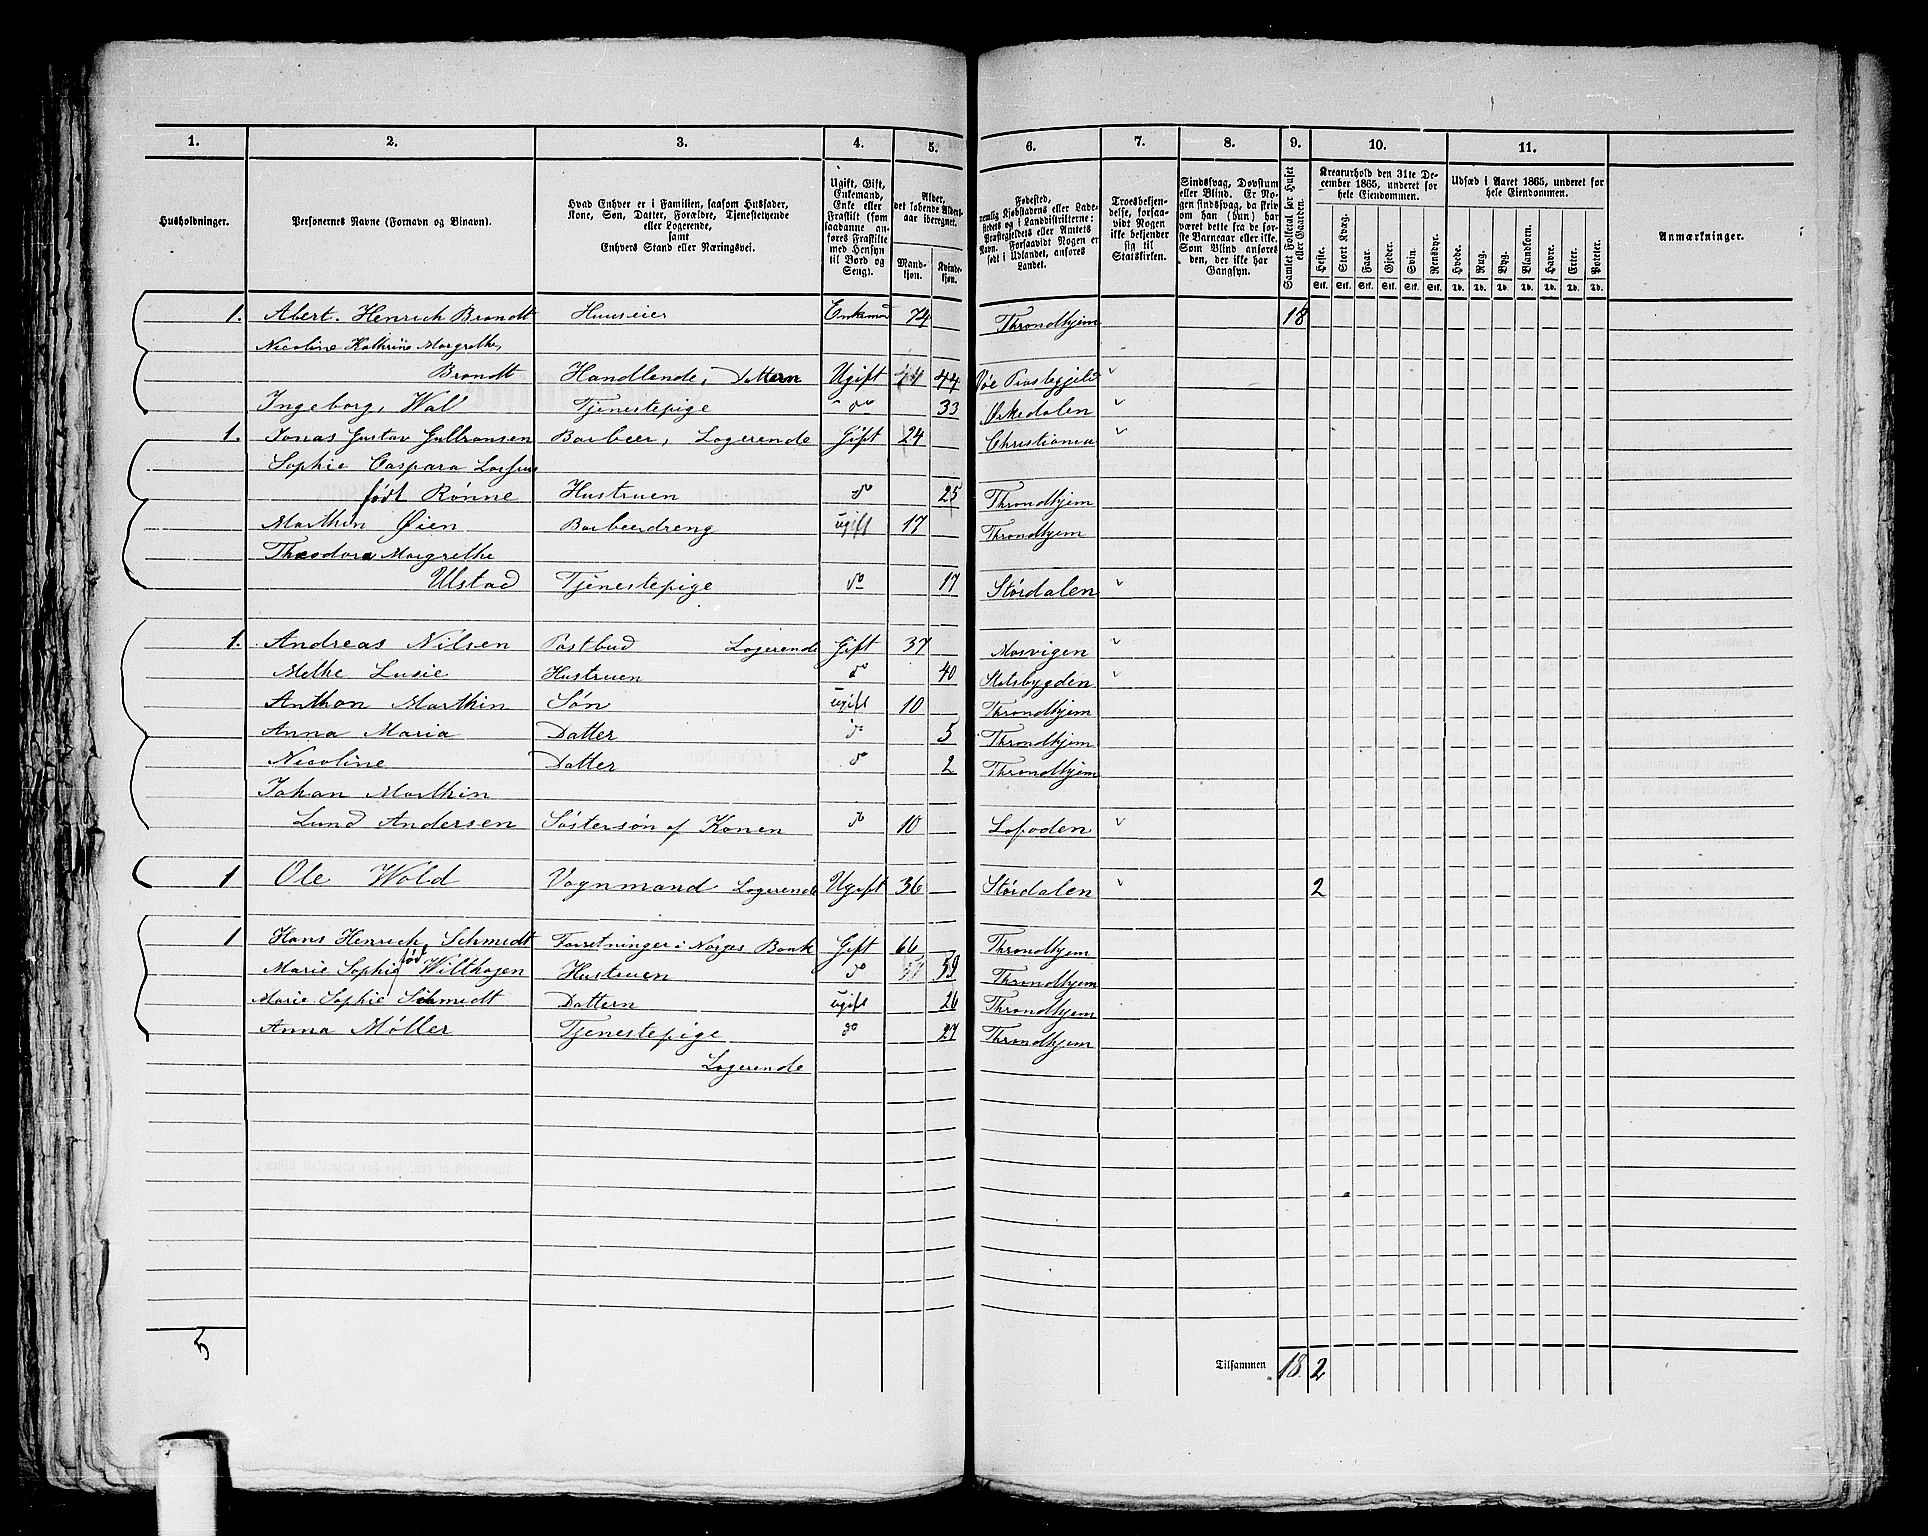 1. 2. 3. 4. 5. 6. 7. 8. 9. 10. 11.
Husholdninger.
Personernes Navne (Fornavn og Binavn).
Hvad Enhver er i Familien, saasom Husfader,
Kone, Søn, Datter, Forældre, Tjenestetyende
eller Logerende,
samt
Enhvers Stand eller Næringsvei.
Ugift, Gift,
Enkemand,
Enke eller
Fraskilt (som
saadanne an-
føres Fraskilte
med Hensyn
til Bord og
Seng).
Alder,
det løbende Alders-
aar iberegnet.
Mand-
kjøn.
Kvinde-
kjøn.
Fødested,
nemlig Kjøbstadens eller Lade-
stedets og i Landdistrikterne:
Præstegjeldets eller Amtets
Navn. Forsaavidt Nogen er
født i Udlandet, anføres
Landet.
Troesbekjen-
delse, forsaa-
vidt Nogen
ikke bekjender
sig til
Statskirken.
Sindssvag, Døvstum
eller Blind. Er No-
gen sindssvag, da skriv
om han (hun) har
været dette fra de før-
ste Barneaar eller ikke.
Som Blind anføres
den, der ikke har
Gangsyn.
Samlet Folketal for Huset
eller Gaarden.
Kreaturhold den 31te De-
cember 1865, underet for
hele Eiendommen.
Heste. Stort Kvæg. Faar. Gjeder. Svin. Rensdyr.
Stk. Stk. Stk. Stk. Stk. Stk.
Udsæd i Aaret 1865, underet for
hele Eiendommen.
Hvede. Rug. Byg. Blandkorn. Havre. Erter. Poteter.
Td. Td. Td. Td. Td. Td. Td.
Anmærkninger.
1. Abert. Henrich Brandt Huuseier Enkemad 74 Throndhjem 18
Nicoline Kathrine Margrethe,
Brandt Handlende, Dattern Ugift 44 44 Præstegjeld v
Ingeborg, Wal Tjenestepige do 33 Ørkedalen v
1. Jonas Gustav Gulbransen Barbeer, Logerende Gift 24 Christiania v
Sophie Caspara
født Rønne Hustruen do 25 Throndhjem
Marthin Øien Barbeerdreng ugift 17 Throndhjem
Theodora Margrethe
Ulstad Tjenestepige do 17 Størdalen v
1. Andreas Nilsen Postbud Logerende Gift 37 Mosvigen v
Methe Lusie Hustruen do 40 Statsbygden v
Anthon Marthin Søn ugift 10 Throndhjem
Anna Maria Datter do 5 Throndhjem
Nicoline Datter do 2 Throndhjem
Johan Marthin
Lund Andersen Søstersøn af Konen do 10 Lofoden v
1 Ole Wold Vognmand Logerende Ugift 36 Størdalen v 2
1 Hans Henrich Schmedt Forretninger i Norges Bank Gift 66 Throndhjem
Marie Sophie fød Wilthagen Hustruen do 59 Throndhjem
Marie Sophie Schmedt Dattern ugift 26 Throndhjem
Anna Møller Tjenestepige do 27 Throndhjem
Logerende
5
Tilsammen 18 2